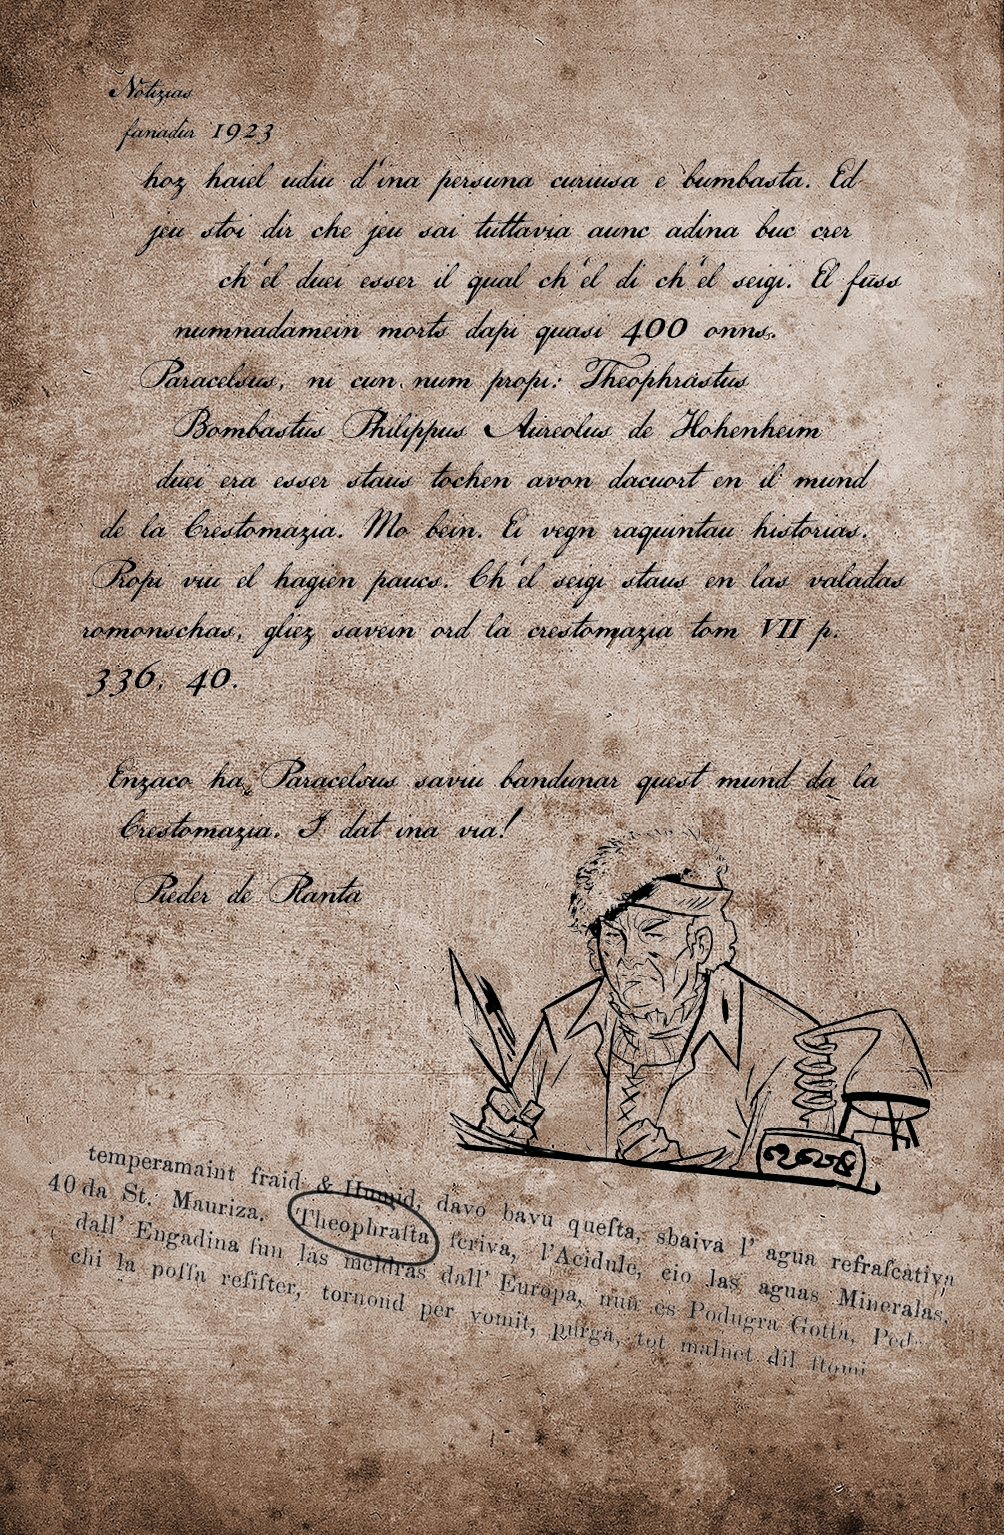 Notizias
fanadur 1923
hoz haiel udiu d'ina persuna curiusa e bumbasta. Ed
jeu stoi dir che jeu sai tuttavia aunc adina buc crer
ch'el duei esser il qual ch'el di ch'el seigi. El fuss
numnadamein morts dapi quasi 400 onns.
Paracelsus, ni cun num propi: Theophrastus
Bombastus Philippus Aureolus de Hohenheim
duei era esser staus tochen avon dacuort en il mund
de la Crestomazia. Mo bein. Ei vegn raquintau historias.
Propi viu el hagien paucs. Ch'el seigi staus en las valadas
romonschas, gliez savein ord la crestomazia tom VII p.
336, 40.
Enzaco ha Paracelsus saviu bandunar quest mund da la
Crestomazia. I dat ina via!
Pieder de Planta
temperamaint fraid & Humid, davo bavu queſta, sbaiva l' agua refraſcativa
40 da St. Mauriza, Theophraſta ſcriva, l'Acidule, eio las aguas Mineralas,
dall' Engadina ſun las meldras dall' Europa, nun es Podugra Gotta,
chi la poſſa reſiſter, tornond per vomit, purga, tot malnet dil ſtomi